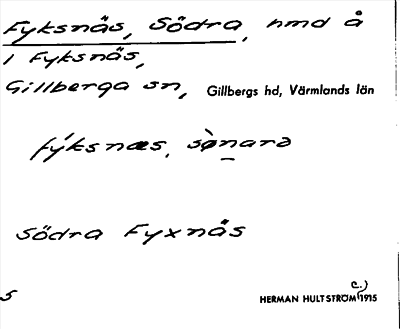 Fyksnäs, Södra, hmd å
1 Fyksnäs,
Gillberga sn, Gillbergs hd, Värmlands län
fýksnæs, sø̀nara
Södra Fyxnås
S
c.)
HERMAN HULTSTRÖM 1915